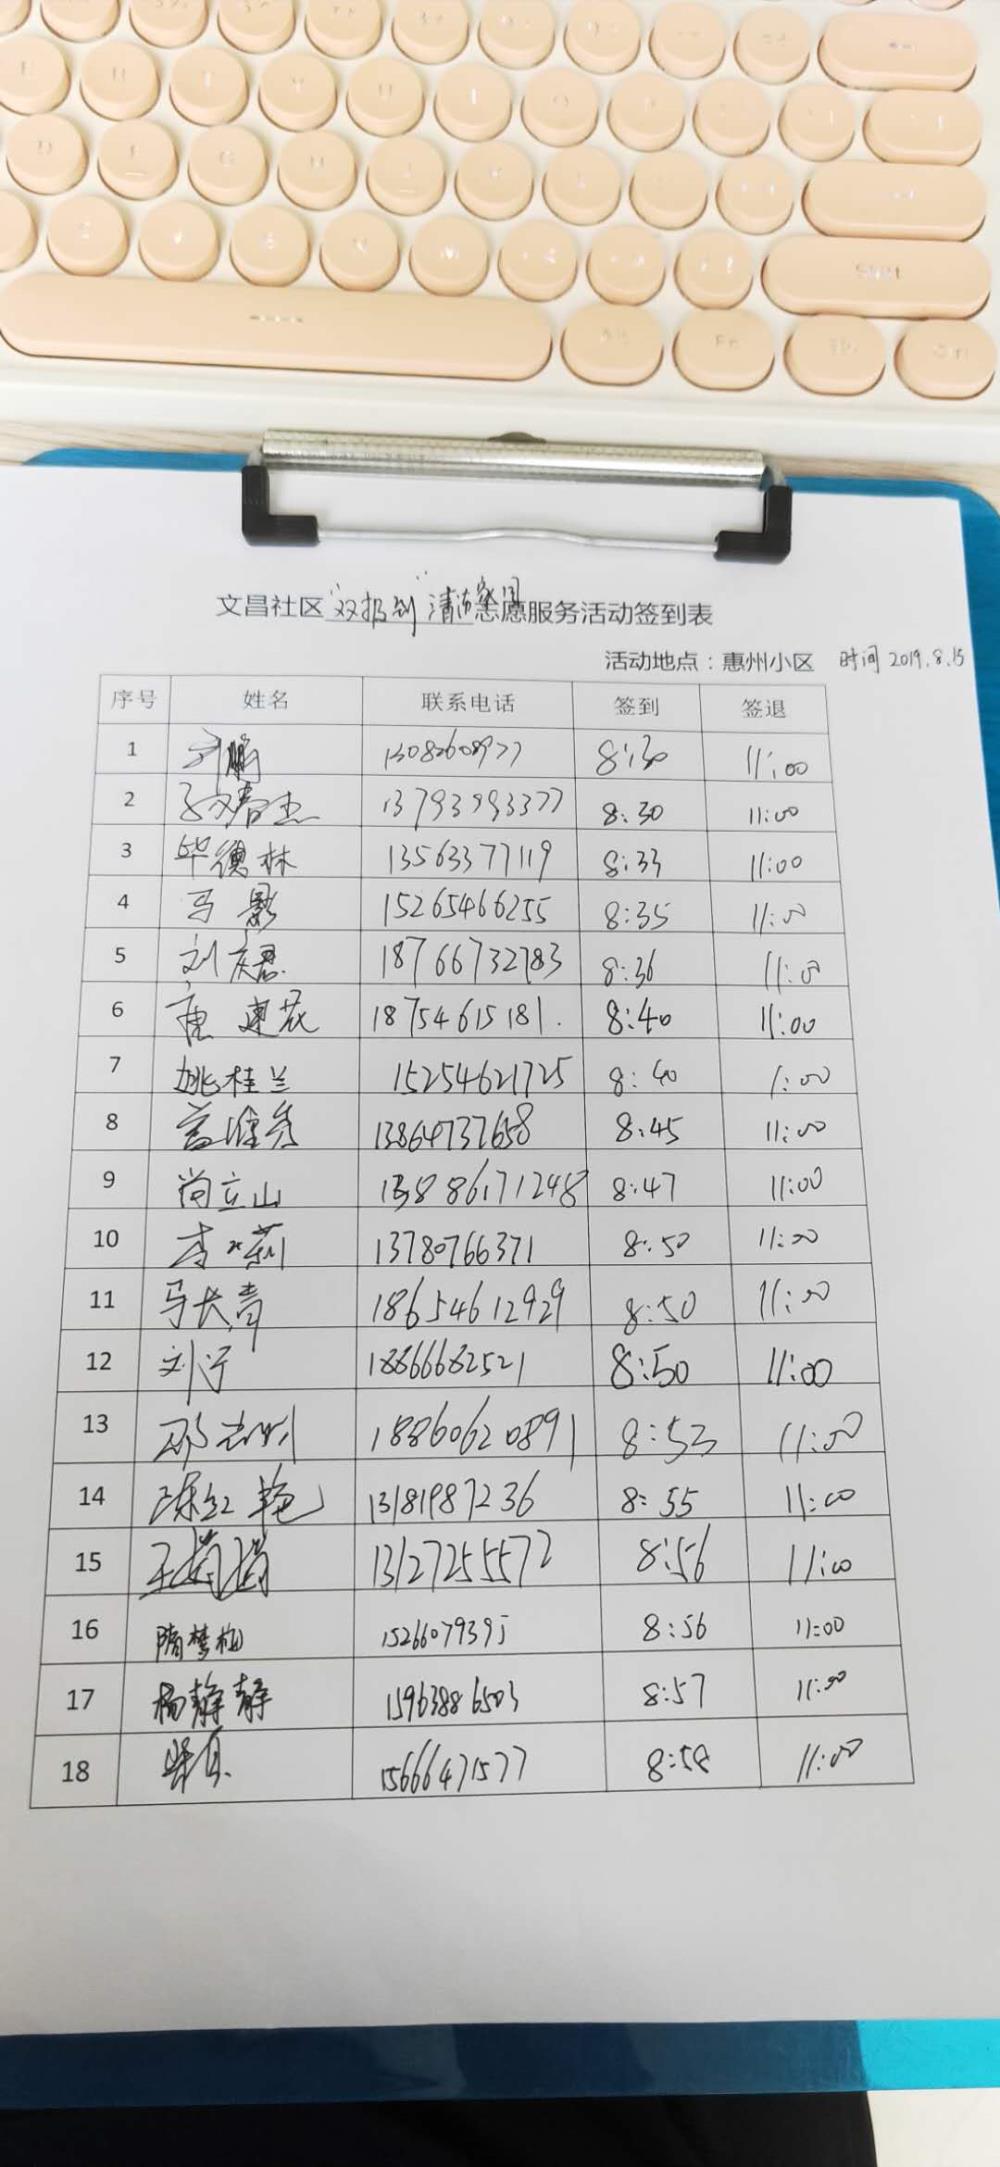 文昌社区"双报到"清洁家园志愿服务活动签到表
活动地点：惠州小区 时间 2019.8.15
序号 姓名 联系电话 签到 签退
1 刘鹏 13082608977 8:30 11:00
2 13793993377 8:30 11:00
3 毕德林 13563377119 8:33 11:00
4 马影 15265466255 8:35 11:00
5 刘庆君 18766732783 8:36 11:00
6 唐建花 18754615181. 8:40 11:00
7 姚桂兰 15254621725 8:40 11:00
8 13864737658 8:45 11:00
9 尚立山 13886171248 8:47 11:00
10 13780766371 8:50 11:00
11 马长青 18654612929 8:50 11:00
12 刘宁 18866682521 8:50 11:00
13 18860620891 8:53 11:00
14 陈红艳 13181987236 8:55 11:00
15 王娟娟 13127255572 8:56 11:00
16 隋梦梅 15266079395 8:56 11:00
17 杨静静 15963886503 8:57 11:00
18 15666471577 8:58 11:00
Shift
Alt Fn Ctrl